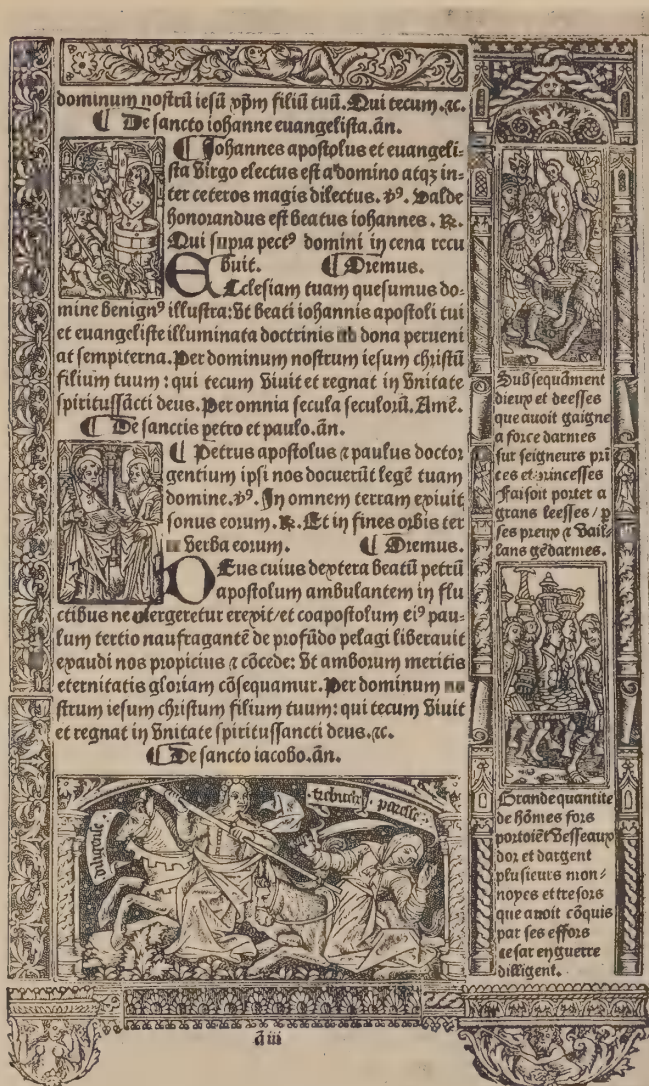 dominum nostrū iesū xp̄m filiū tuū. Qui tecum. ⁊c.
¶ De sancto iohanne euangelista. añ.
¶ Johannes apostolus et euangeli-
sta virgo electus est a domino atqꝫ in-
ter ceteros magis dilectus. ꝟ⁹. Valde
honorandus est beatus iohannes. ℞.
Qui supra pect⁹ domini in cena recu
buit. ¶ Oremus.
Ecclesiam tuam quesumus do-
mine benign⁹ illustra: vt beati iohannis apostoli tui
et euangeliste illuminata doctrinis dona perueni
at sempiterna. Per dominum nostrum iesum christū
filium tuum: qui tecum viuit et regnat in vnitate
spiritussācti deus. Per omnia secula seculorū. Amē.
¶ De sanctis petro et paulo. añ.
¶ Petrus apostolus ⁊ paulus doctor
gentium ipsi nos docuerūt legē tuam
domine. ꝟ⁹. In omnem terram exiuit
sonus eorum. ℞. Et in fines orbis ter
verba eorum. ¶ Oremus.
Deus cuius dextera beatū petrū
apostolum ambulantem in flu
ctibus ne mergeretur erexit/et coapostolum ei⁹ pau-
lum tertio naufragantē de profūdo pelagi liberauit
exaudi nos propicius ⁊ cōcede: vt amborum meritis
eternitatis gloriam cōsequamur. Per dominum no
strum iesum christum filium tuum: qui tecum viuit
et regnat in vnitate spiritussancti deus. ⁊c.
¶ De sancto iacobo. añ.
diligence
trebuche paresse
Subsequāment
dieux et deesses
que auoit gaigne
a force darmes
sur seigneurs prī
ces et princesses
Faisoit porter a
grans leesses / p̲
ses preux ⁊ vail-
lans gēdarmes.
Grande quantite
de hōmes fors
portoiēt vesseaux
dor et dargent
plusieurs mon-
noyes et tresors
que auoit cōquis
par ses effors
cesar en guerre
diligent.
ā iii